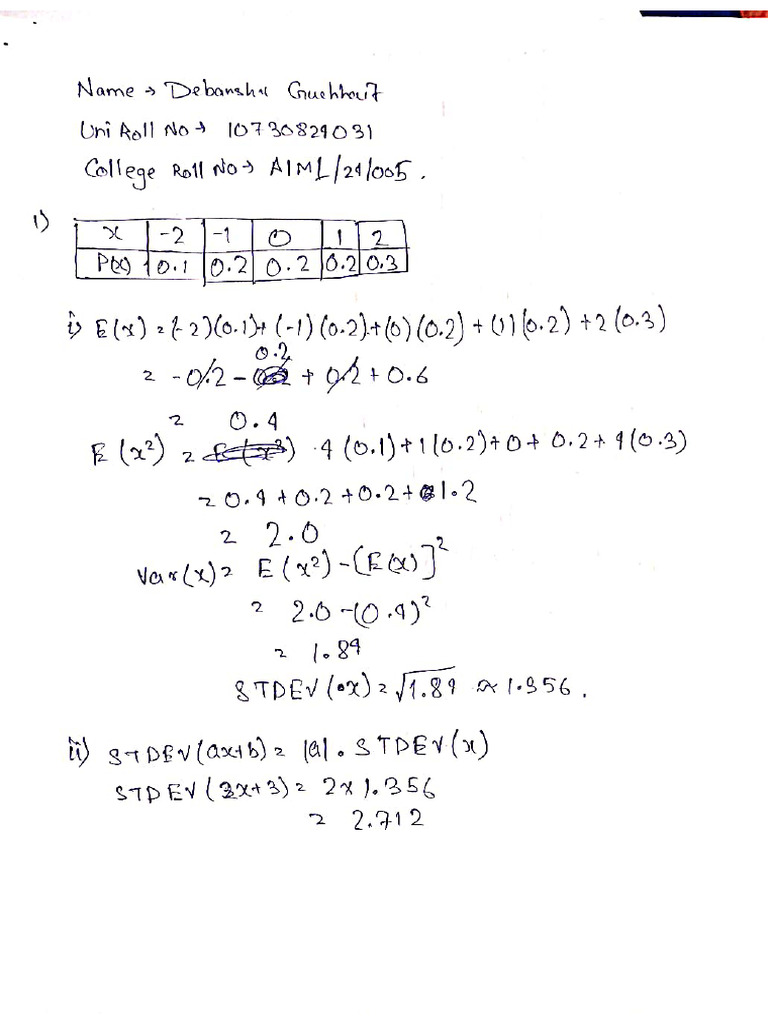 Name → Debanshu Guchhait
Uni Roll No → 10730824031
College Roll No → AIML/24/005.
1)
x | -2 | -1 | 0 | 1 | 2
P(x) | 0.1 | 0.2 | 0.2 | 0.2 | 0.3
i) E(x) = (-2)(0.1)+(-1)(0.2)+(0)(0.2)+(1)(0.2)+2(0.3)
= -0.2 - 0.2 + 0.2 + 0.6
= 0.4
E(x²) = 4(0.1)+1(0.2)+0+0.2+4(0.3)
= 0.4+0.2+0.2+1.2
= 2.0
Var(x) = E(x²)-[E(x)]²
= 2.0-(0.4)²
= 1.84
STDEV(x) = √1.84 ≈ 1.356.
ii) STDEV(ax+b) = |a|. STDEV(x)
STDEV(2x+3) = 2x1.356
= 2.712